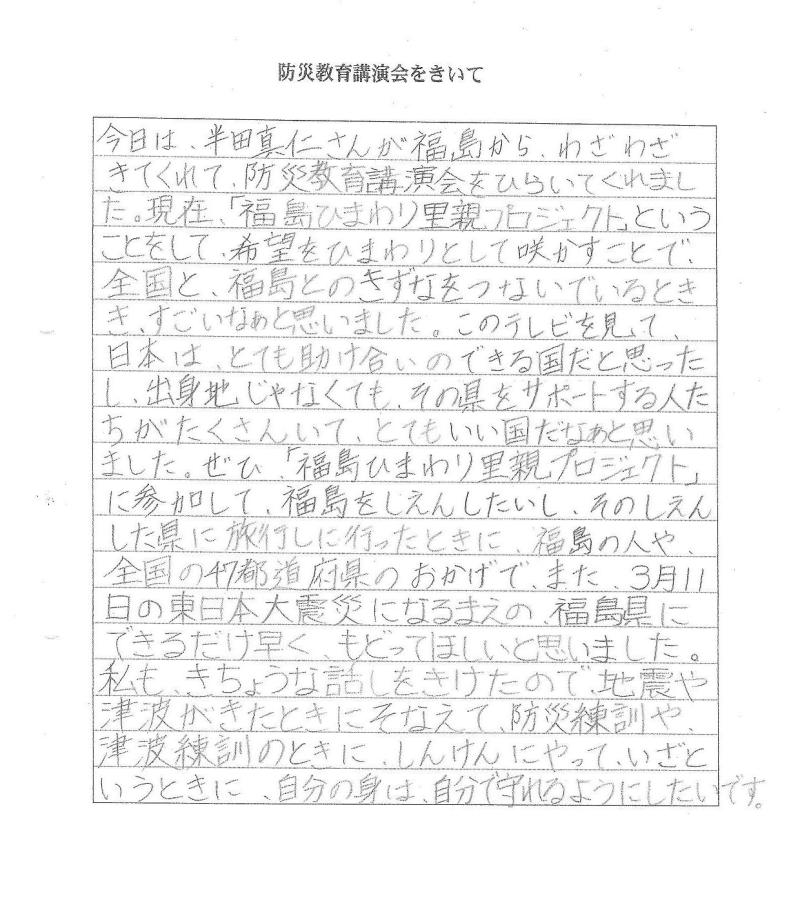 防災教育講演会をきいて
今日は、半田真仁さんが福島から、わざわざ
きてくれて、防災教育講演会をひらいてくれまし
た。現在、「福島ひまわり里親プロジェクト」という
ことをして、希望をひまわりとして咲かすことで、
全国と、福島とのきずなをつないでいるとき
き、すごいなぁと思いました。このテレビを見て、
日本は、とても助け合いのできる国だと思った
し、出身地じゃなくても、その県をサポートする人た
ちがたくさんいて、とてもいい国だなぁと思い
ました。ぜひ、「福島ひまわり里親プロジェクト」
に参加して、福島をしえんしたいし、そのしえん
した県に旅行しに行ったときに、福島の人や、
全国の47都道府県のおかげで、また、3月11
日の東日本大震災になるまえの、福島県に
できるだけ早く、もどってほしいと思いました。
私も、きちょうな話しをきけたので、地震や
津波がきたときにそなえて、防災練訓や、
津波練訓のときに、しんけんにやって、いざと
いうときに、自分の身は、自分で守れるようにしたいです。